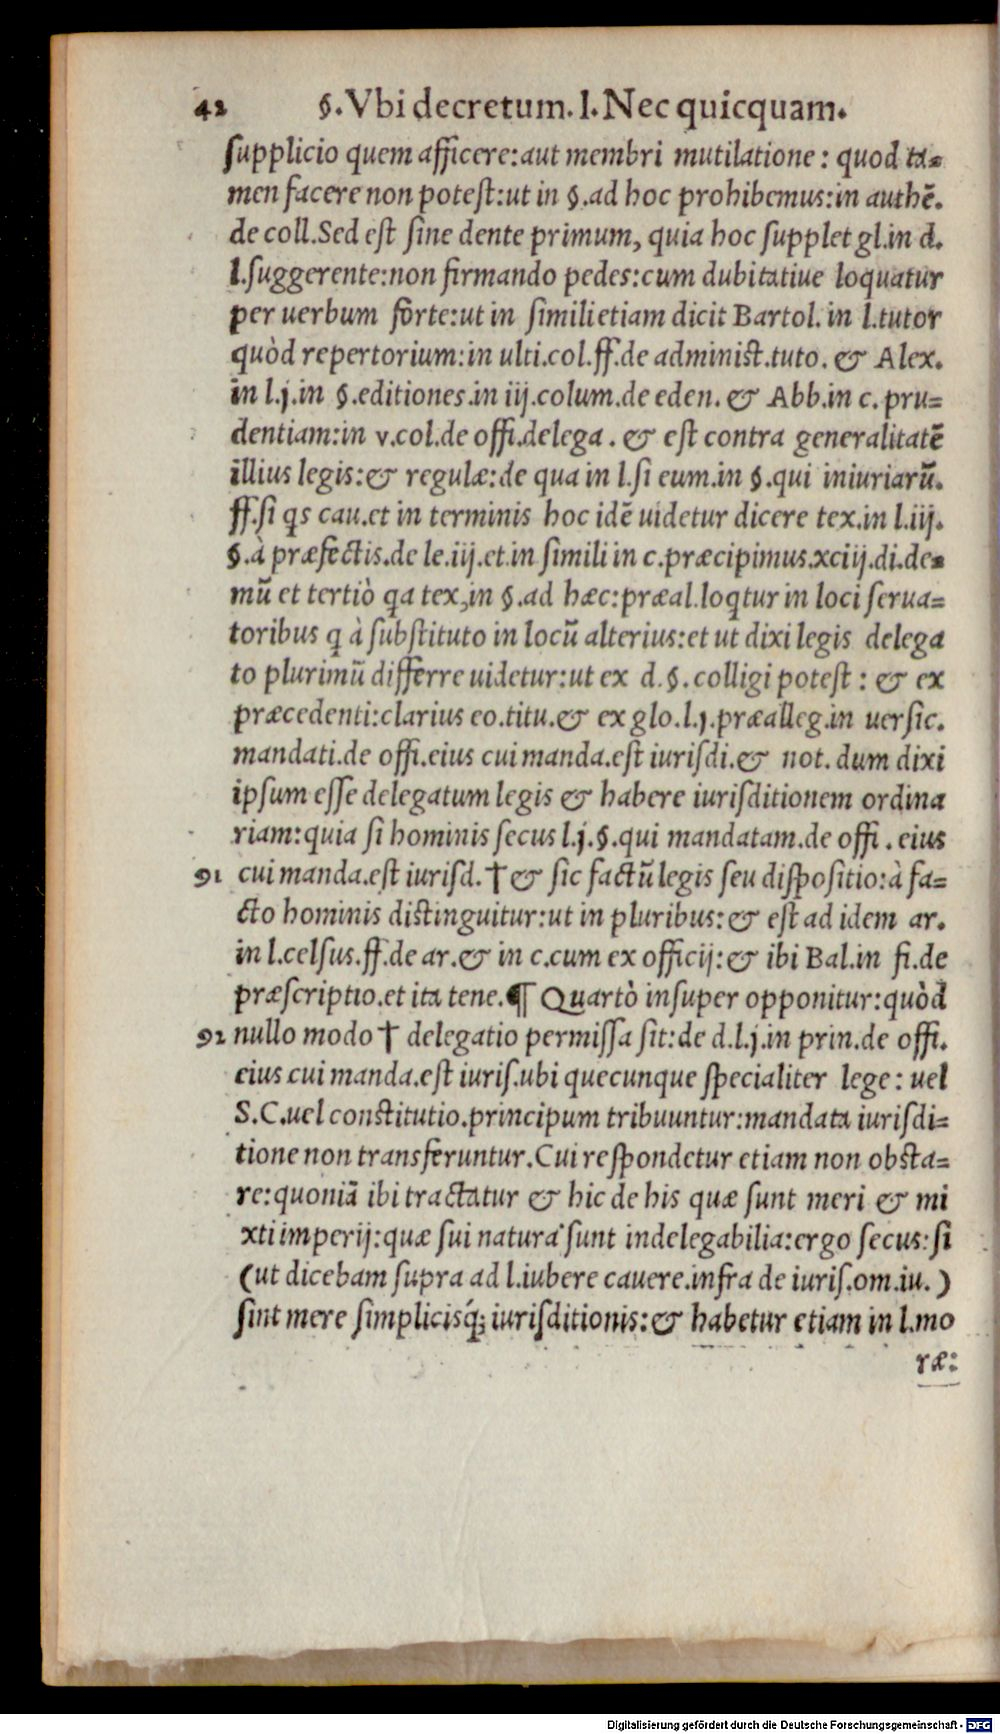 42 §.Vbi decretum. l. Nec quicquam.
supplicio quem afficere: aut membri mutilatione: quod ta=
men facere non potest: ut in §. ad hoc prohibemus: in authē.
de coll. Sed est sine dente primum, quia hoc supplet gl. in d.
l. suggerente: non firmando pedes: cum dubitatiue loquatur
per uerbum forte: ut in simili etiam dicit Bartol. in l. tutor
quòd repertorium: in ulti. col. ff. de administ. tuto. & Alex.
in l. j. in §. editiones. in iij. colum. de eden. & Abb. in c. pru=
dentiam: in v. col. de offi. delega. & est contra generalitatē
illius legis: & regulæ: de qua in l. si eum. in §. qui iniuriarū.
ff. si qs cau. et in terminis hoc idē uidetur dicere tex. in l. iij.
§. à præfectis. de le. iij. et in simili in c. præcipimus. xciij. di. de=
mū et tertiò qa tex, in §. ad hæc: præal. loqtur in loci serua=
toribus q à substituto in locū alterius: et ut dixi legis delega
to plurimū differre uidetur: ut ex d. §. colligi potest: & ex
præcedenti: clarius eo. titu. & ex glo. l. j. præalleg. in uersic.
mandati. de offi. eius cui manda. est iurisdi. & not. dum dixi
ipsum esse delegatum legis & habere iurisditionem ordina
riam: quia si hominis secus l. j. §. qui mandatam. de offi. eius
91 cui manda. est iurisd. † & sic factū legis seu dispositio: à fa=
cto hominis distinguitur: ut in pluribus: & est ad idem ar.
in l. celsus. ff. de ar. & in c. cum ex officij: & ibi Bal. in fi. de
præscriptio. et ita tene. ¶ Quartò insuper opponitur: quòd
92 nullo modo † delegatio permissa sit: de d. l. j. in prin. de offi.
eius cui manda. est iuris. ubi quecunque specialiter lege: uel
S. C. uel constitutio. principum tribuuntur: mandata iurisdi=
tione non transferuntur. Cui respondetur etiam non obsta=
re: quoniā ibi tractatur & hic de his quæ sunt meri & mi
xti imperij: quæ sui natura sunt indelegabilia: ergo secus: si
(ut dicebam supra ad l. iubere cauere. infra de iuris. om. iu.)
sint mere simplicisq́; iurisditionis: & habetur etiam in l. mo
ræ:
Digitalisierung gefördert durch die Deutsche Forschungsgemeinschaft - DFG